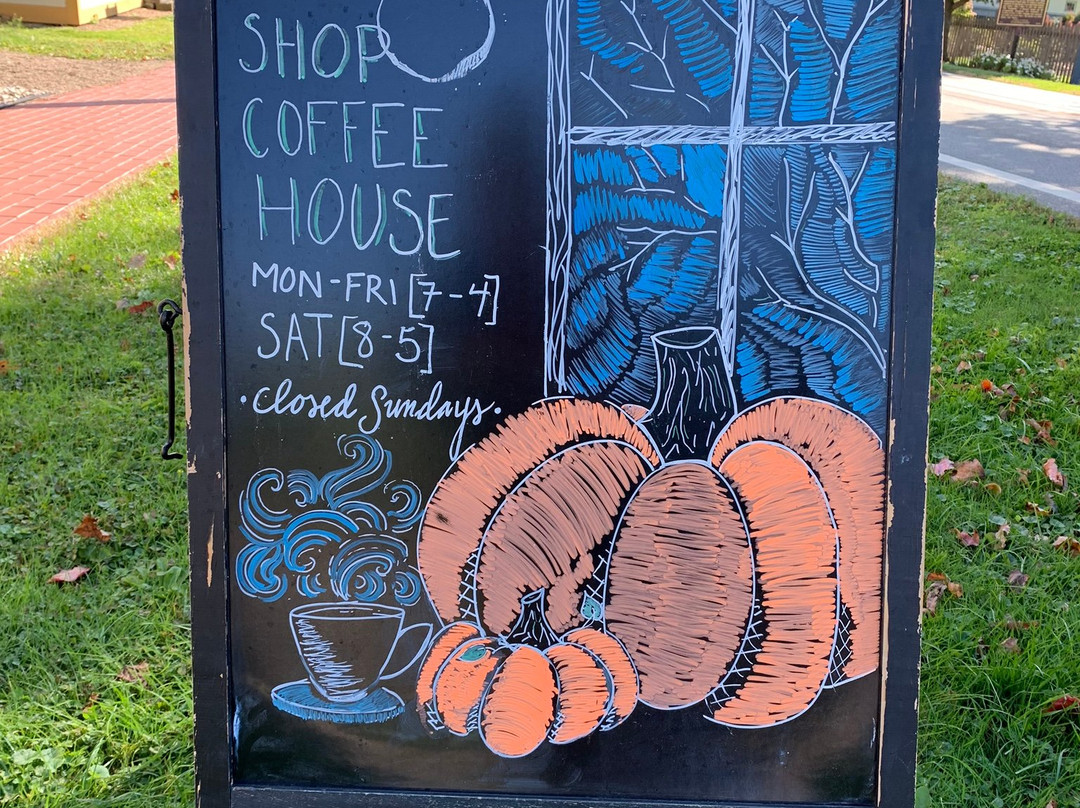 SHOP
COFFEE
HOUSE
MON-FRI [7-4]
SAT [8-5]
·Closed Sundays·